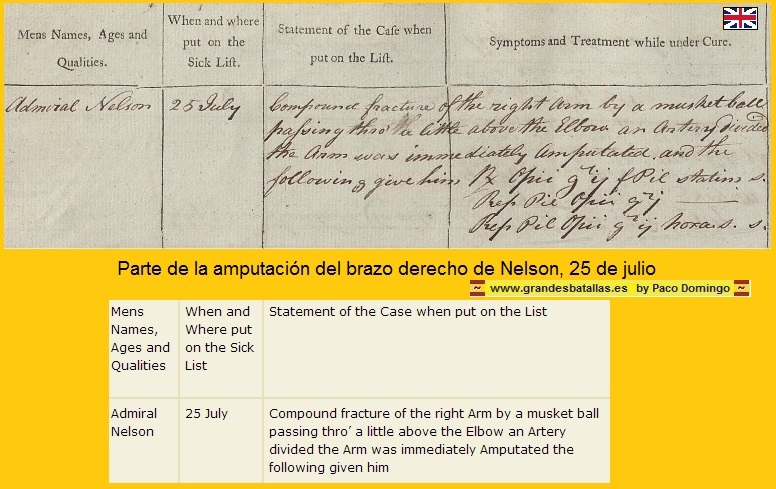 Mens Names, Ages and
Qualities.
When and where
put on the
Sick List.
Statement of the Case when
put on the List.
Symptoms and Treatment while under Cure.
Admiral Nelson
25 July
Compound fracture of the right Arm by a musket ball
passing thro' a little above the Elbow an Artery divided
the Arm was immediately Amputated and the
following give him ℞ Opii gr ij f Pil statim s.
Rep Pil Opii gr ij
Rep Pil Opii gr ij hora s. s.
Parte de la amputación del brazo derecho de Nelson, 25 de julio
www.grandesbatallas.es by Paco Domingo
Mens
Names,
Ages and
Qualities
When and
Where put
on the Sick
List
Statement of the Case when put on the List
Admiral
Nelson
25 July
Compound fracture of the right Arm by a musket ball
passing thro’ a little above the Elbow an Artery
divided the Arm was immediately Amputated the
following given him